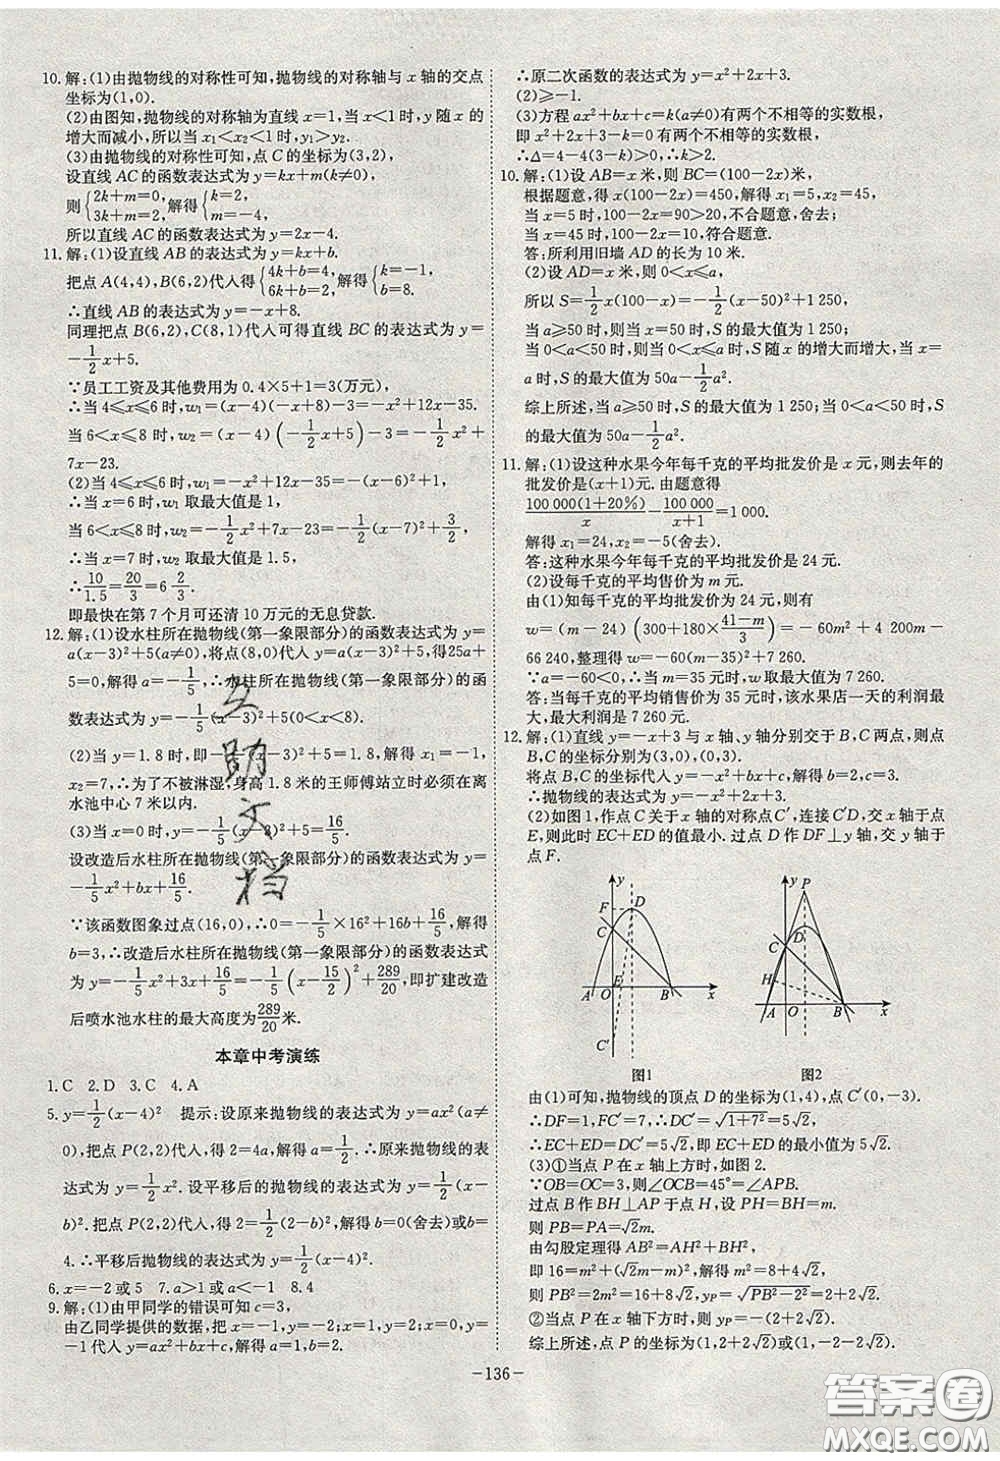 10.解:(1)由抛物线的对称性可知,抛物线的对称轴与 x 轴的交点
坐标为(1,0).
(2)由图知,抛物线的对称轴为直线 x=1,当 x<1时,y 随 x 的
增大而减小,所以当 x₁<x₂<1时,y₁>y₂.
(3)由抛物线的对称性可知,点 C 的坐标为(3,2),
设直线 AC 的函数表达式为 y=kx+m(k≠0).
则{2k+m=0, 3k+m=2, 解得{k=2, m=-4,
所以直线 AC 的函数表达式为 y=2x-4.
11.解:(1)设直线 AB 的表达式为 y=kx+b.
把点 A(4,4),B(6,2)代入得{4k+b=4, 6k+b=2, 解得{k=-1, b=8.
∴直线 AB 的表达式为 y=-x+8.
同理把点 B(6,2),C(8,1)代入可得直线 BC 的表达式为 y=
-1/2x+5.
∵员工工资及其他费用为 0.4×5+1=3(万元),
∴当 4≤x≤6时,w₁=(x-4)(-x+8)-3=-x²+12x-35.
当 6<x≤8 时,w₂=(x-4)(-1/2x+5)-3=-1/2x²+
7x-23.
(2)当 4≤x≤6时,w₁=-x²+12x-35=-(x-6)²+1,
∴当 x=6时,w₁取最大值是 1,
当 6<x≤8时,w₂=-1/2x²+7x-23=-1/2(x-7)²+3/2,
∴当 x=7时,w₂取最大值是 1.5,
∴10/1.5=20/3=6 2/3.
即最快在第 7 个月可还清 10 万元的无息贷款.
12.解:(1)设水柱所在抛物线(第一象限部分)的函数表达式为 y=
a(x-3)²+5(a≠0),将点(8,0)代入 y=a(x-3)²+5,得25a+
5=0,解得 a=-1/5,∴水柱所在抛物线(第一象限部分)的函
数表达式为 y=-1/5(x-3)²+5(0<x<8).
(2)当 y=1.8时,即-1/5(x-3)²+5=1.8,解得 x₁=-1,
x₂=7,∴为了不被淋湿,身高 1.8 米的王师傅站立时必须在离
水池中心 7 米以内.
(3)当 x=0时,y=-1/5(x-3)²+5=16/5.
设改造后水柱所在抛物线(第一象限部分)的函数表达式为 y=
-1/5x²+bx+16/5.
∵该函数图象过点(16,0),∴0=-1/5×16²+16b+16/5,解得
b=3,∴改造后水柱所在抛物线(第一象限部分)的函数表达式
为 y=-1/5x²+3x+16/5=-1/5(x-15/2)²+289/20,即扩建改造
后喷水池水柱的最大高度为289/20米.
本章中考演练
1.C 2.D 3.C 4.A
5.y=1/2(x-4)² 提示:设原来抛物线的表达式为 y=ax²(a≠
0),把点 P(2,2)代入,得 2=4a,解得 a=1/2.∴原来抛物线的表
达式为 y=1/2x².设平移后的抛物线的表达式为 y=1/2(x-
b)².把点 P(2,2)代入,得 2=1/2(2-b)²,解得 b=0(舍去)或 b=
4.∴平移后抛物线的表达式为 y=1/2(x-4)².
6.x=-2 或 5 7.a>1 或 a<-1 8.4
9.解:(1)由甲同学的错误可知 c=3,
由乙同学提供的数据,把 x=-1,y=-2;x=1,y=2,c=
-1代入 y=ax²+bx+c,解得 a=1,b=2.
∴原二次函数的表达式为 y=x²+2x+3.
(2)≥-1.
(3)方程 ax²+bx+c=k(a≠0)有两个不相等的实数根,
即 x²+2x+3-k=0 有两个不相等的实数根,
∴Δ=4-4(3-k)>0,∴k>2.
10.解:(1)设 AB=x 米,则 BC=(100-2x)米,
根据题意,得 x(100-2x)=450,解得 x₁=5,x₂=45,
当 x=5时,100-2x=90>20,不合题意,舍去;
当 x=45 时,100-2x=10,符合题意.
答:所利用旧墙 AD 的长为 10 米.
(2)设 AD=x 米,则 0<x≤a,
所以 S=1/2x(100-x)=-1/2(x-50)²+1 250,
当 a≥50时,则 x=50时,S 的最大值为 1 250;
当 0<a<50 时,则当 0<x≤a 时,S 随 x 的增大而增大,当 x=
a 时,S 的最大值为 50a-1/2a².
综上所述,当 a≥50时,S 的最大值为 1 250;当 0<a<50时,S
的最大值为50a-1/2a².
11.解:(1)设这种水果今年每千克的平均批发价是 x 元,则去年的
批发价是(x+1)元.由题意得
100 000(1+20%)/x-100 000/(x+1)=1 000.
解得 x₁=24,x₂=-5(舍去).
答:这种水果今年每千克的平均批发价是 24 元.
(2)设每千克的平均售价为 m 元.
由(1)知每千克的平均批发价为 24 元,则有
w=(m-24)(300+180×(41-m)/3)=-60m²+4 200m-
66 240,整理得 w=-60(m-35)²+7 260.
∵a=-60<0,∴当 m=35 元时,w 取最大值为 7 260.
答:当每千克的平均销售价为 35 元时,该水果店一天的利润最
大,最大利润是 7 260 元.
12.解:(1)直线 y=-x+3与 x 轴、y轴分别交于 B,C 两点,则点
B,C 的坐标分别为(3,0),(0,3).
将点 B,C 的坐标代入 y=-x²+bx+c,解得 b=2,c=3.
∴抛物线的表达式为 y=-x²+2x+3.
(2)如图 1,作点 C 关于 x 轴的对称点 C′,连接 C′D,交 x 轴于点
E,则此时 EC+ED 的值最小.过点 D 作 DF⊥y 轴,交 y 轴于
点 F.
y F D C A O E B x C′
y P C D H A O B x
图1 图2
由(1)可知,抛物线的顶点 D 的坐标为(1,4),点 C′(0,-3).
∴DF=1,FC′=7,∴DC′=√(1+7²)=5√2.
∴EC+ED=DC′=5√2,即 EC+ED 的最小值为 5√2.
(3)①当点 P 在 x 轴上方时,如图 2.
∵OB=OC=3,则∠OCB=45°=∠APB.
过点 B 作 BH⊥AP 于点 H,设 PH=BH=m.
则 PB=PA=√2m.
由勾股定理得 AB²=AH²+BH²,
即 16=m²+(√2m-m)²,解得 m²=8+4√2,
则 PB²=2m²=16+8√2,yP=√(PB²-2²)=2+2√2.
②当点 P 在 x 轴下方时,则 yP=-(2+2√2).
综上所述,点 P 的坐标为(1,2+2√2)或(1,-2-2√2).
-136-
答案圈
MXQE.COM